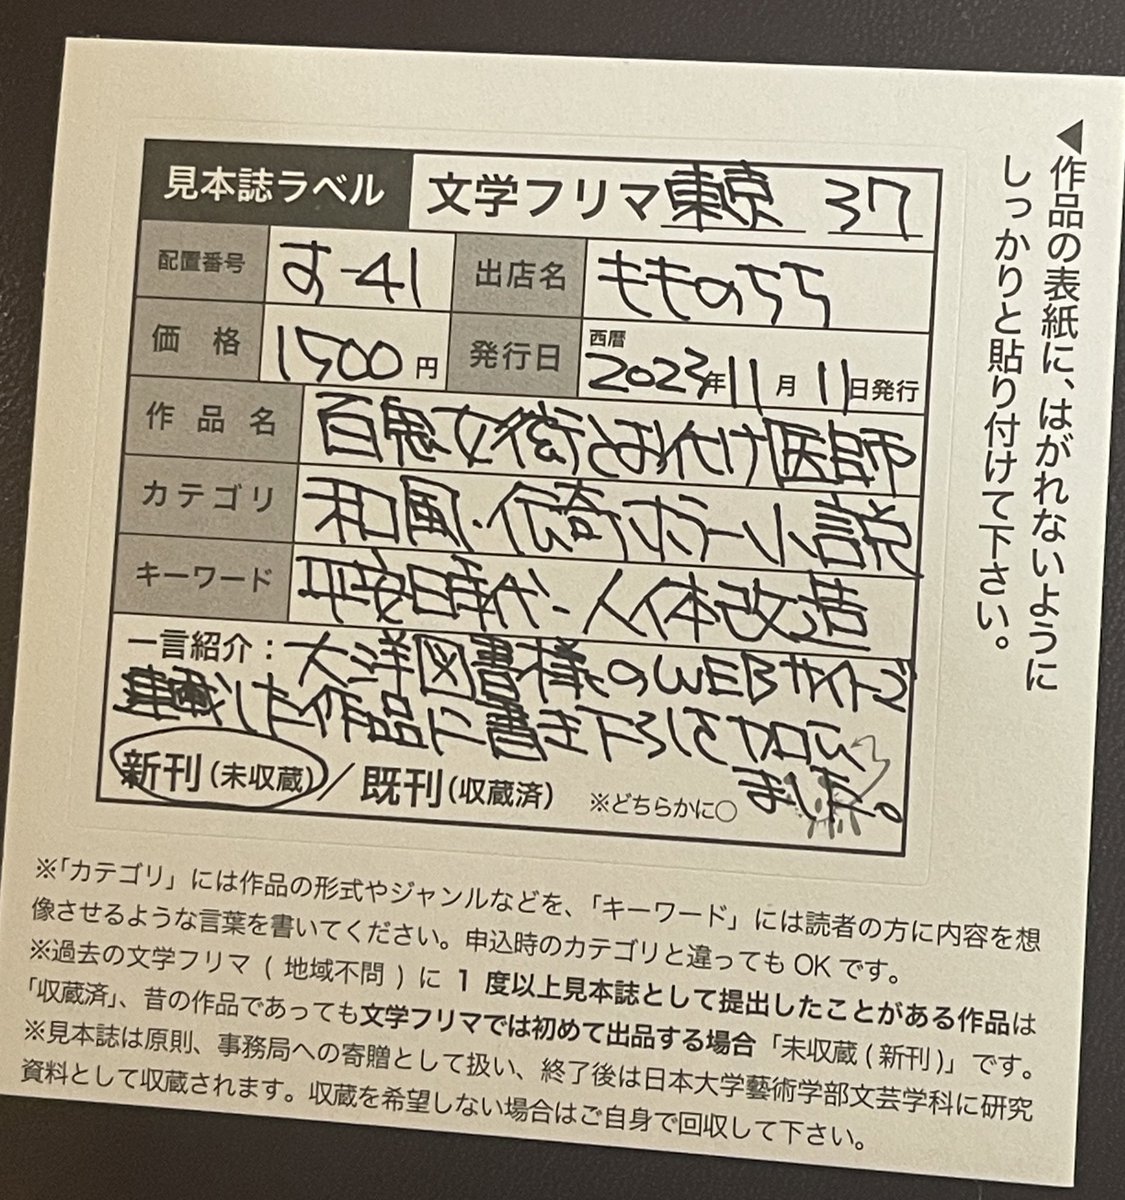 ◀作品の表紙に、はがれないように
しっかりと貼り付けて下さい。
見本誌ラベル 文学フリマ 東京 37
配置番号 す-41 出店名 もものちち
価格 1500円 発行日 西暦 2023年11月11日発行
作品名 百鬼女衒とお代け医師
カテゴリ 和風・伝奇ホラー小説
キーワード 平安時代-人体改造
一言紹介：大洋図書様のWEBサイトで
連載した作品に書き下ろしを加え
ました。
新刊(未収蔵)/既刊(収蔵済) ※どちらかに○
※「カテゴリ」には作品の形式やジャンルなどを、「キーワード」には読者の方に内容を想
像させるような言葉を書いてください。申込時のカテゴリと違ってもOKです。
※過去の文学フリマ(地域不問)に1度以上見本誌として提出したことがある作品は
「収蔵済」、昔の作品であっても文学フリマでは初めて出品する場合「未収蔵(新刊)」です。
※見本誌は原則、事務局への寄贈として扱い、終了後は日本大学藝術学部文芸学科に研究
資料として収蔵されます。収蔵を希望しない場合はご自身で回収して下さい。